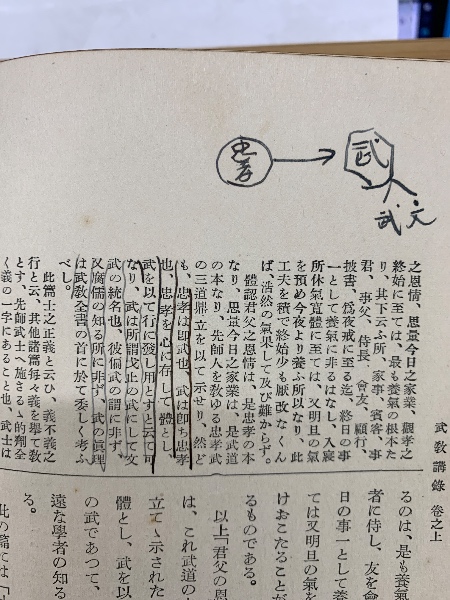 忠孝
武
人
武、文
武教講錄 卷之上
之恩情、思量今日之家業、觀孝之
終始に至ては、最も養氣の根本た
り、其下云ふ所、家事、賓客、事
君、事父、侍長、會友、顧行、
披書、爲夜戒に至る迄、終日の事
一として養氣に非るはなし、入寢
所休氣寬體に至ては、又明旦の氣
を預め今夜より養ふ所以なり、此
工夫を積で終始少も厭改なくん
ば、浩然の氣果して及び難からす。
體認君父之恩情は、是忠孝の本
なり、思量今日之家業は、是武道
の本なり、先師人を敎ゆる忠孝武
の三道鼎立を以て示せり、然ど
も、忠孝は卽武也、武は卽ち忠孝
也、忠孝を心に存して體とし、
武を以て行に發し用とすと云て可
なり、武は所謂戈止の武にして文
武の統名也、彼偏武の謂に非ず、
又腐儒の知る所に非ず、武の眞理
は武敎全書の首に於て委しく考ふ
べし。
此篇士之正義と云ひ、義不義之
行と云、其他諸篇每々義を擧て敎
とす、先師武士へ施さるゝ的翔全
く義の一字にあること也、武士は
るのは、是も養氣
者に侍し、友を會
日の事一として養
ては又明旦の氣を
けおこたることが
るものである。
以上「君父の恩
は、これ武道の
立てゝ示された
體とし、武を以
の武であつて、
遠な學者の知る
る。
此の篇では「士